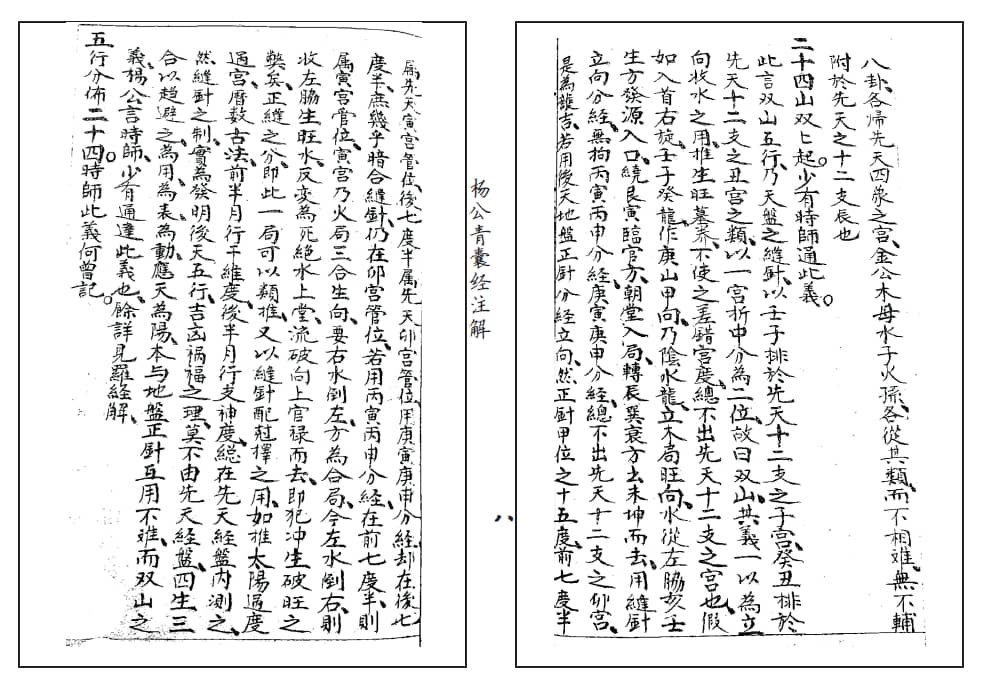 八卦、各歸先天四象之宮、金公木母水子火孫、各從其類、而不相难、無不輔
附於先天之十二支辰也
二十四山双匕起。少有時師通此義。
此言双山五行、乃天盤之縫針、以壬子排於先天十二支之子宮、癸丑排於
先天十二支之丑宮之類、以一宮折中分為二位、故曰双山、其義一以為立
向收水之用、推生旺墓养、不使之差錯宮度、總不出先天十二支之宮也、假
如入首右旋、壬子癸龍、作庚山甲向、乃陰水龍、立木局旺向、水從左脇亥壬
生方發源、入口繞艮寅臨官方、朝堂入局、轉辰巽衰方、去未坤而去、用縫針
立向分經、無拘丙寅丙申分經、庚寅庚申分經、總不出先天十二支之卯宮、
是為龍吉、若用後天地盤正針分經立向、然正針甲位之十五度、前七度半
杨公青囊经注解
八
属先天寅宮管位、後七度半属先天卯宮管位、用庚寅庚申分經、却在後七
度半、庶幾乎暗合縫針、仍在卯宮管位、若用丙寅丙申分經、在前七度半、則
属寅宮管位、寅宮乃火局三合生向、要右水倒左、方為合局、今左水倒右、則
收左脇生旺水、反变為死絕水上堂、流破向上官禄而去、即犯冲生破旺之
弊矣、正縫之分、即此一局可以類推、又以縫針配尅擇之用、如推太陽過度
過宮、曆数古法、前半月行干維度、後半月行支神度、總在先天經盤內測之、
然縫針之制、實為發明後天五行、吉凶禍福之理、莫不由先天經盤、四生三
合以趋避之、為用、為表、為動、應天為陽、本与地盤正針互用不难、而双山之
義、楊公言時師、少有通達此義也、餘詳見羅經解、
五行分佈二十四。時師此義何曾記。